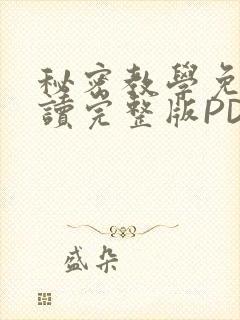 秘密教學免
讀完整版PD
盛朵